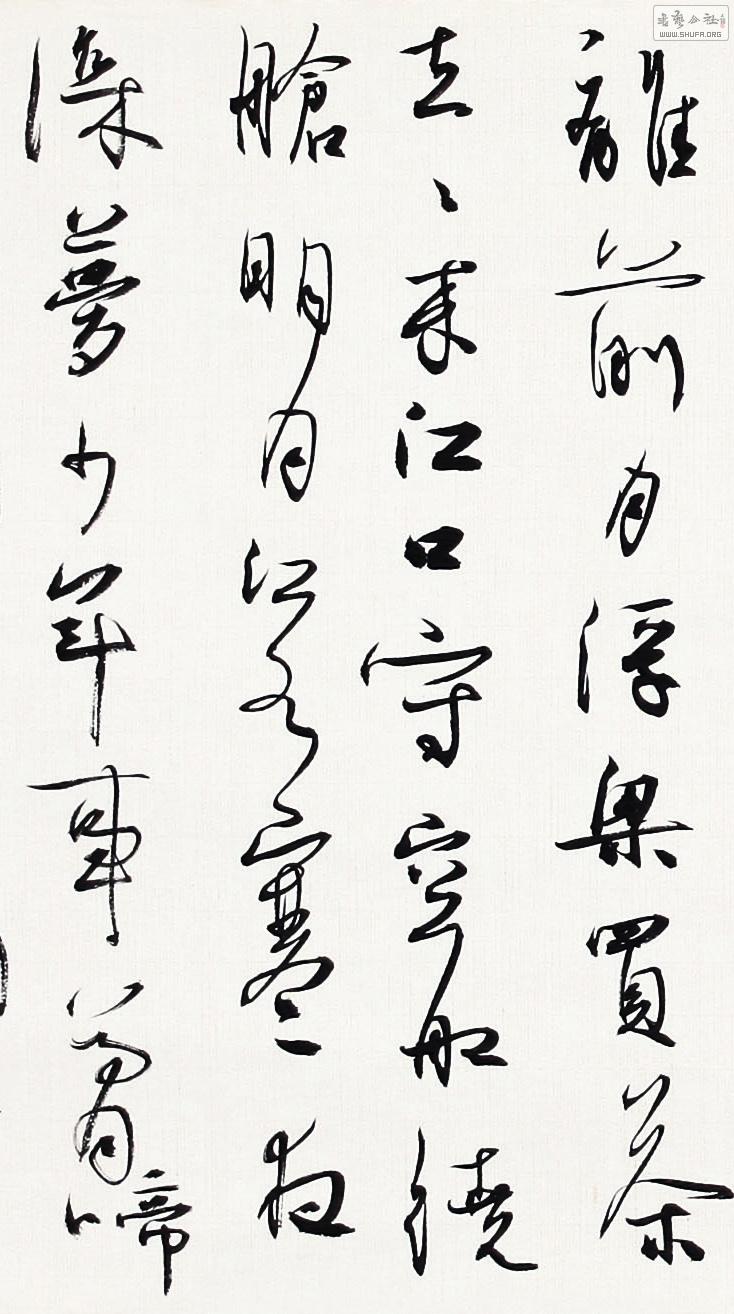 離前月浮梁買茶
去〻來江口守空船繞
艙明月江水寒夜
深夢少年事夢啼
書藝公社
WWW.SHUFA.ORG